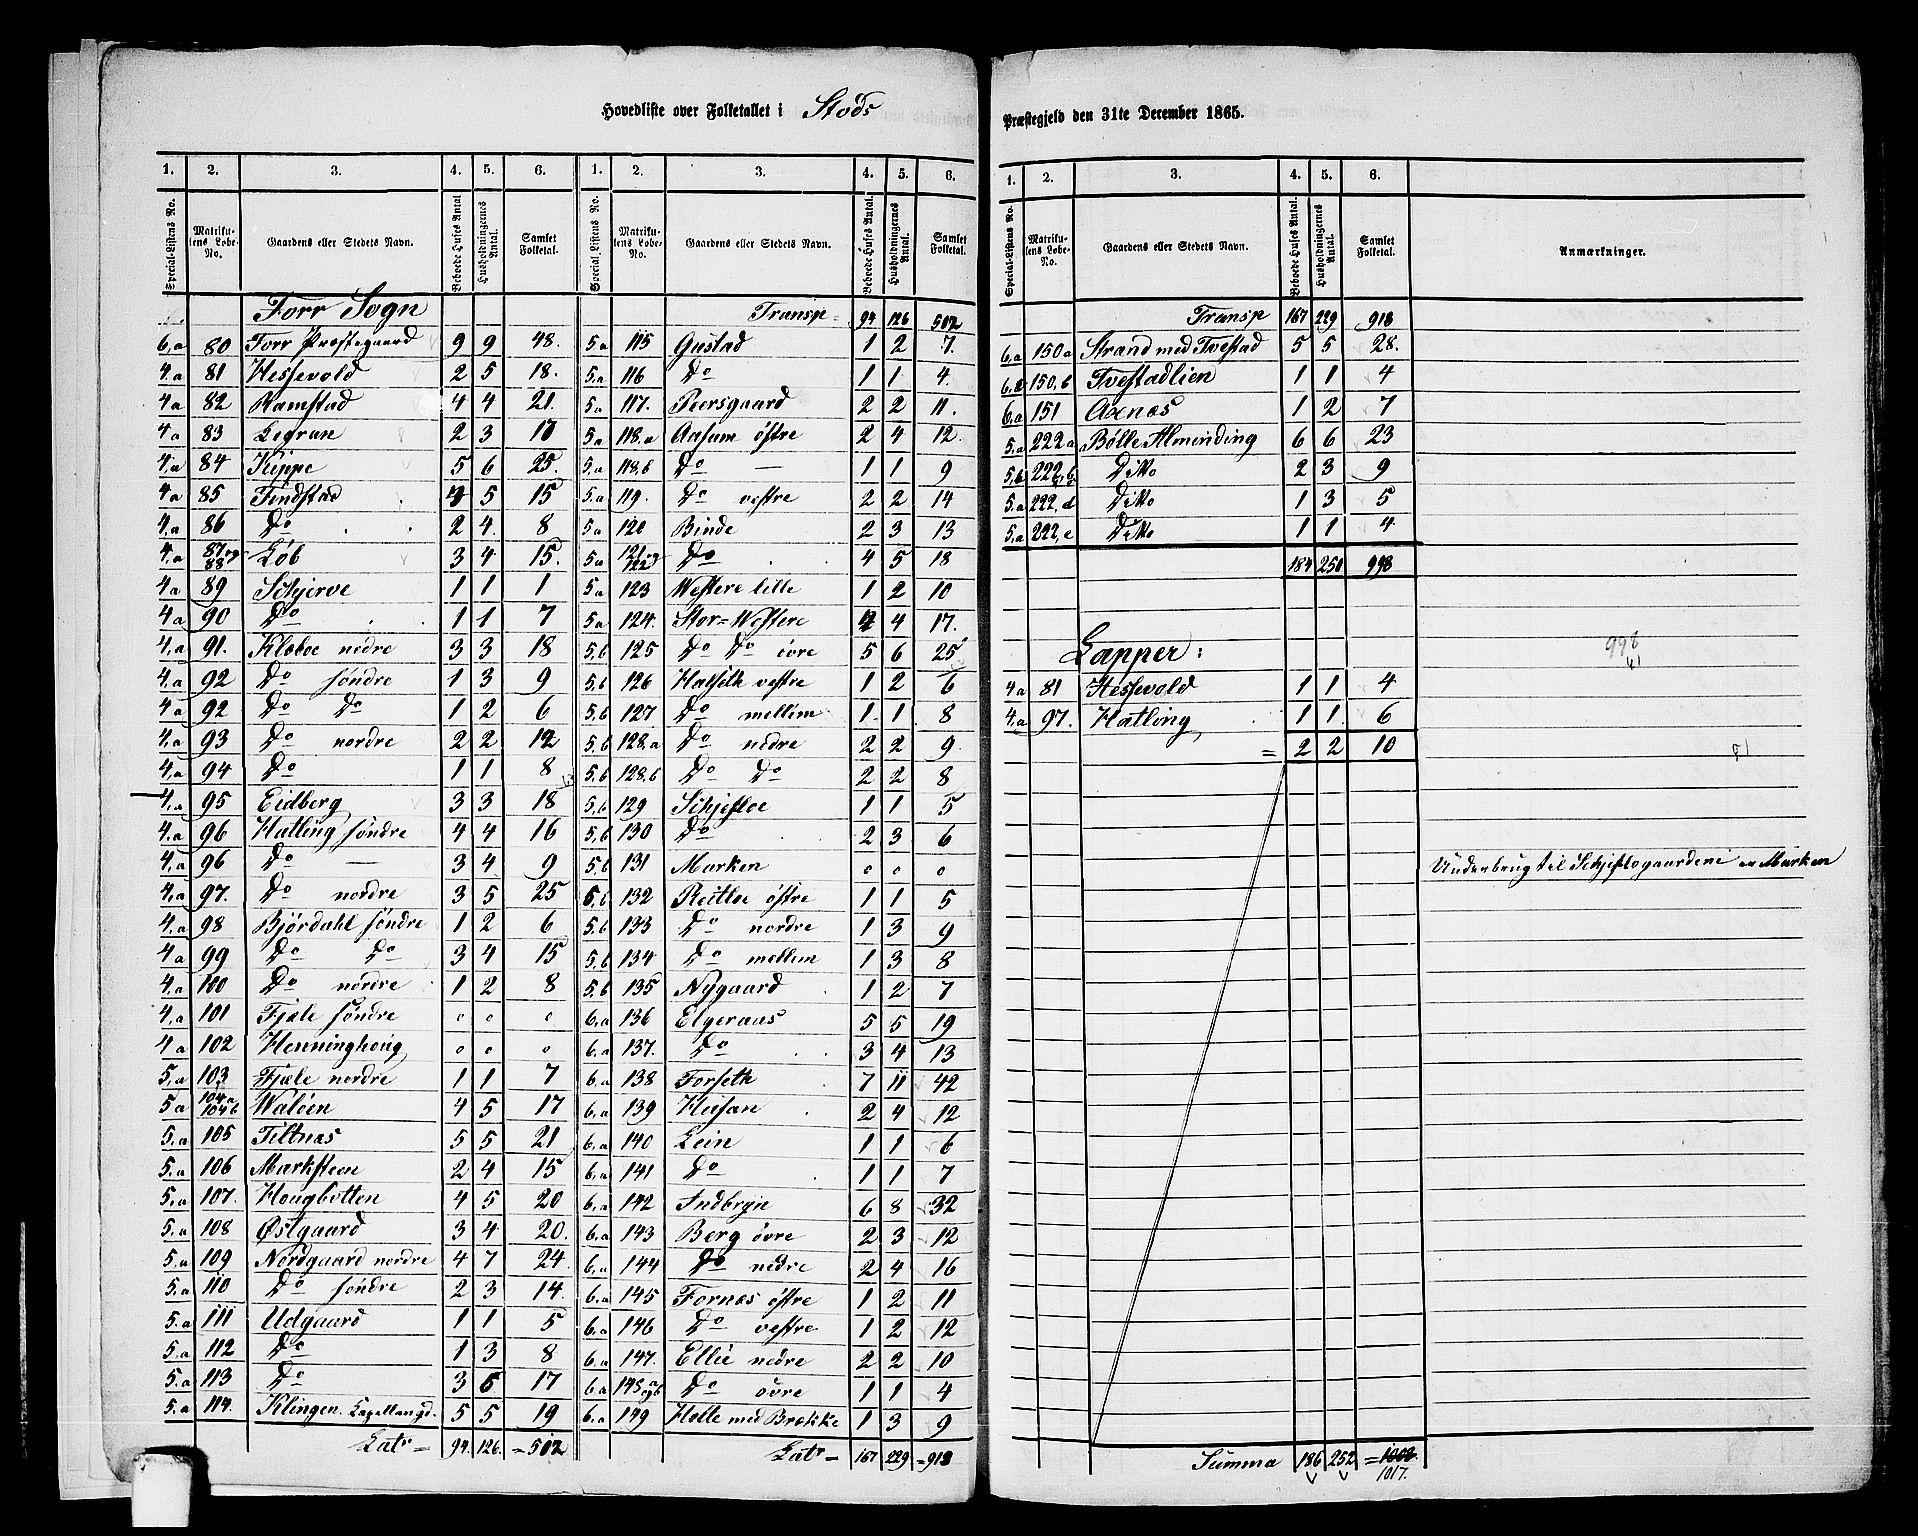 Hovedliste over Folketallet i Stods Præstegjeld den 31te December 1865.
1. 2. 3. 4. 5. 6. 1. 2. 3. 4. 5. 6.
Special-Listens No. Matrikulens Løbe-No. Gaardens eller Stedets Navn. Beboede Huses Antal Husholdningernes Antal. Samlet Folketal. Special-Listens No. Matrikulens Løbe-No. Gaardens eller Stedets Navn. Beboede Huses Antal. Husholdningernes Antal. Samlet Folketal.
Forr Sogn
6,a 80 Forr Præstegaard 9 9 48.
4,a 81 Hessevold 2 5 18.
4a 82 Ramstad 4 4 21.
4.a 83 Legran 2 3 17
4,a 84 Kippe 5 6 25.
4a 85 Findstad 4 5 15
4,a 86 Do 2 4. 8
4,a 87 og 88 Løb 3 4 15.
4a 89 Schjerve 1 1 1
4a 90 Do 1 1 7
4,a 91. Kleboe nedre 3 3 18
4,a 92 Do søndre 1 3 9
4,a 92 Do Do 1 2 6
4,a 93 Do nordre 2 2 12
4,a 94 Do 1 1 8
4,a 95 Eidberg 3 3 18
4,a 96 Hatling søndre 4 4 16
4,a 96 Do — 3 4. 9
4,a 97. Do nordre 3 5 25
4,a 98 Bjørdahl søndre 1 2 6
4,a 99 Do Do 3 4 15
4,a 100 Do nordre 1 2 8
4,a 101 Fjæle søndre o o o
4,a 102 Henninghoug o o o
5,a 103 Fjæle nordre 1 1 7
5a 104a 104b Waløen 4 5 17
5.a 105 Tiltnæs 5 5 21
5.a 106 Marksteen 2 4 15
5.a 107. Hougbotten 4 5 20
5.a 108 Østgaard 3 4 20.
5.a 109 Nordgaard nordre 4 7 24.
5.a 110 Do søndre 2 3 14.
5.a 111 Udgaard 1 1 5
5.a 112 Do 1 3 8
5.a 113 Do 3 6 17
5.a 114. Klingen. Capellangd. 5 5 19
Lats = 94. 126. = 502
Transp 94 126 502
5a 115 Gustad 1 2 7.
5.a 116 Do 1 1 4.
5a 117. Peersgaard 2 2 11.
5a 118.a Aasum østre 2 4 12.
5,a 118.b Do — 1 1 9
5.a 119. Do vestre 2 2 14
5,a 120 Binde 2 3 13
5a 121 og 122 Do 4 5 18
5a 123 Westere lille 1 2 10
5a 124. Stor=Westere 4 4 17.
5,b 125 Do Do øvre 5 6 25
5,b 126 Halseth vestre 1 2 6
5,b 127 Do mellem 1 1 8
5,b 128.a Do nedre 2 2 9
5,b 128.b Do Do 2 2 8
5,b 129 Schjefloe 1 1 5
5,b 130 Do 2 3 6
5.b 131 Marken o o o
5,b 132 Reitloe østre 1 1 5
5,b 133 Do nordre 1 3 9
5,b 134 Do mellem 1 3 8
5,b 135 Nygaard 1 2 7
6,a 136 Elgeraas 5 5 19
6.a 137. Do 3 4 13
6.a 138 Forseth 7 11 42
6.a 139 Husan 2 4 12
6.a 140 Lein 1 1 6
6.a 141 Do 1 1 7
6.a 142 Indbryn 6 8 32
6.a 143 Berg øvre 2 3 12
6.a 144 Do nedre 2 4 16
6.a 145 Fornæs østre 1 2 11
6.a 146 Do vestre 1 2 12
6.a 147. Ellie nedre 2 2 10
6a 148 a og b Do øvre 1 1 4
6.a 149 Holte med Brække 1 3 9
Lats = 167 229 = 918
1. 2. 3. 4. 5. 6.
Special-Listens No. Matrikulens Løbe-No. Gaardens eller Stedets Navn. Beboede Huses Antal. Husholdningernes Antal. Samlet Folketal. Anmærkninger.
Transp 167 229 918
6.a 150a Strand med Tvestad 5 5 28.
150,b Tvestadlien 1 1 4
6.a 151 Axnæs 1 2 7
5.a 222a Bølle Alminding 6 6 23
5,b 222,b Ditto 2 3 9
5.a 222.d Ditto 1 3 5
5,a 222,e Ditto 1 1 4
184 250 998
Lapper:
998
41
4a 81 Hessevold 1 1 4
4,a 97. Hatling 1 1 6
= 2 2 10
Underbrug til Schjeflogaardene er Marken
Summa 186 252 = 1008.
1017.